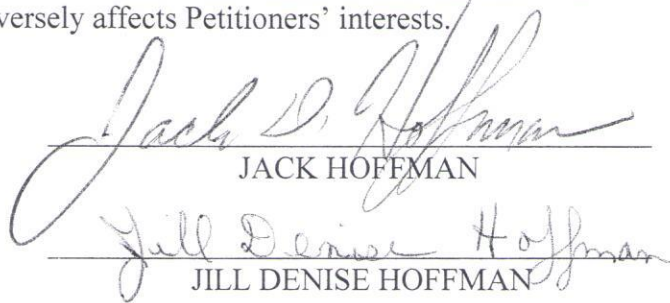 versely affects Petitioners’ interests.
Jack D. Hoffman
JACK HOFFMAN
Jill Denise Hoffman
JILL DENISE HOFFMAN